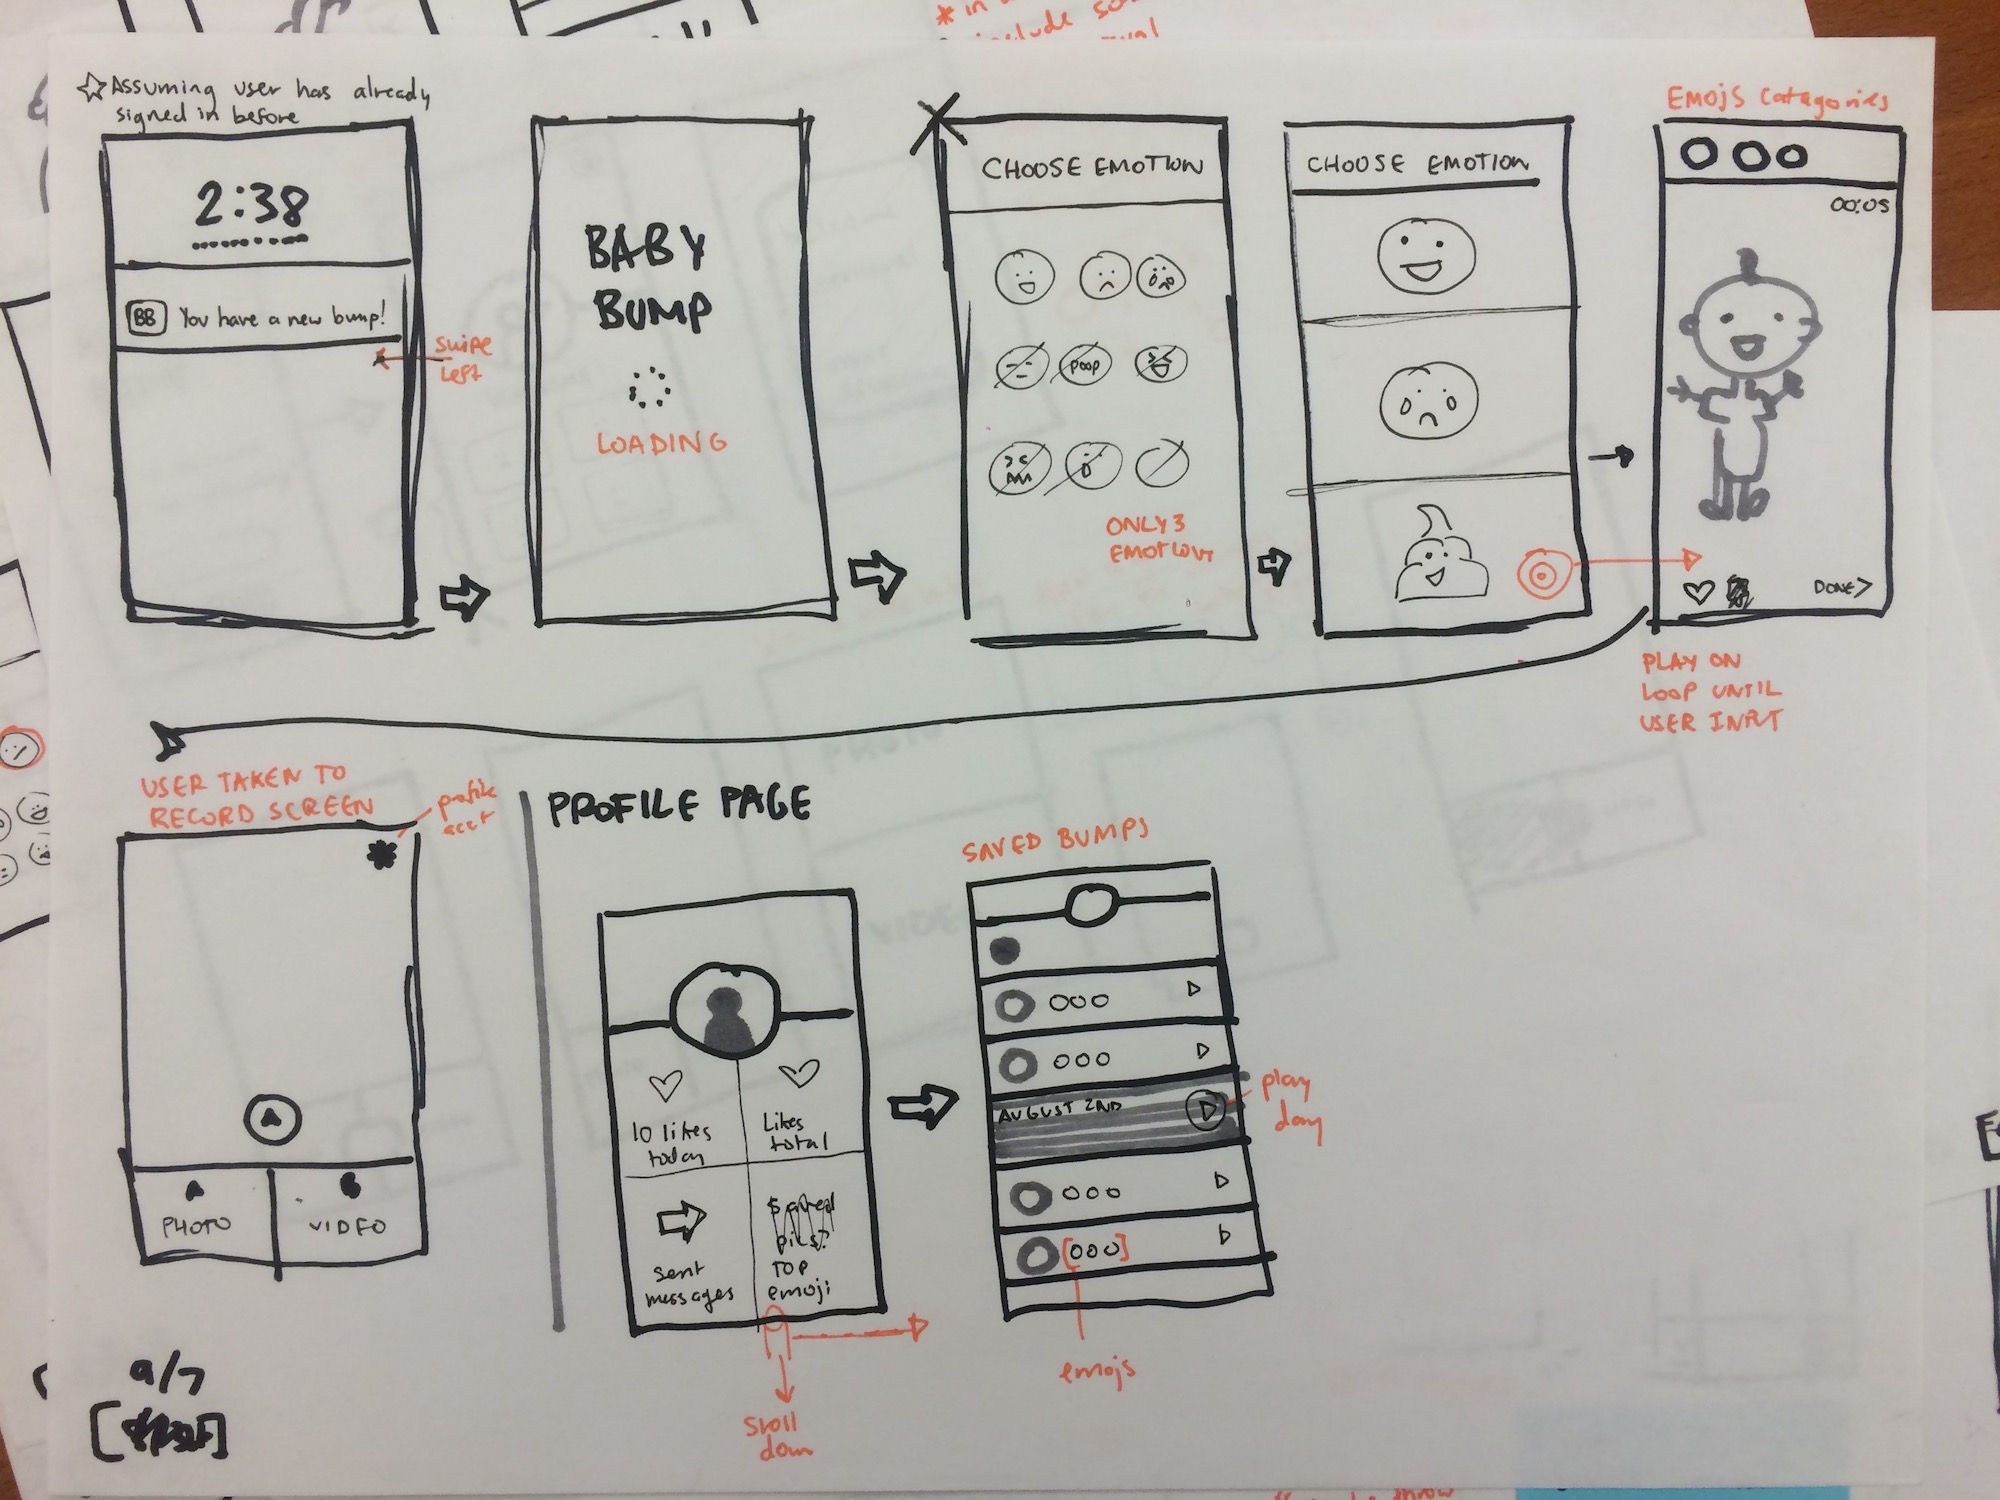 * in
include
☆ Assuming user has already
signed in before
2:38
BB You have a new bump!
swipe
left
BABY
BUMP
LOADING
CHOOSE EMOTION
poop
ONLY 3
CHOOSE EMOTION
EMOJS CATAGORIES
00:05
DONE>
PLAY ON
LOOP UNTIL
USER INPUT
USER TAKEN TO
RECORD SCREEN
profile
acct
A
A
PHOTO
B
VIDEO
PROFILE PAGE
10 likes
today
Likes
total
sent
messages
TOP
emoji
SAVED BUMPS
AUGUST 2ND
play
day
emojs
down
9/7
throw